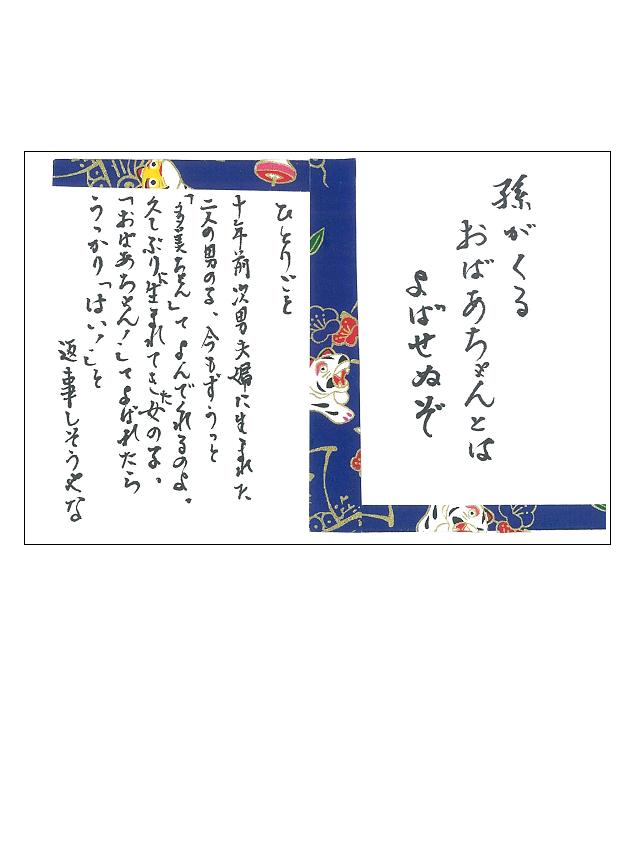 孫がくる
おばあちゃんとは
よばせぬぞ
ひとりごと
十年前次男夫婦に生まれた
二人の男の子、今もずうっと
「多美ちゃん」てよんでくれるのよ。
久しぶりに生まれてきた女の子。
「おばあちゃん！」てよばれたら
うっかり「はい！」と
返事しそうやな